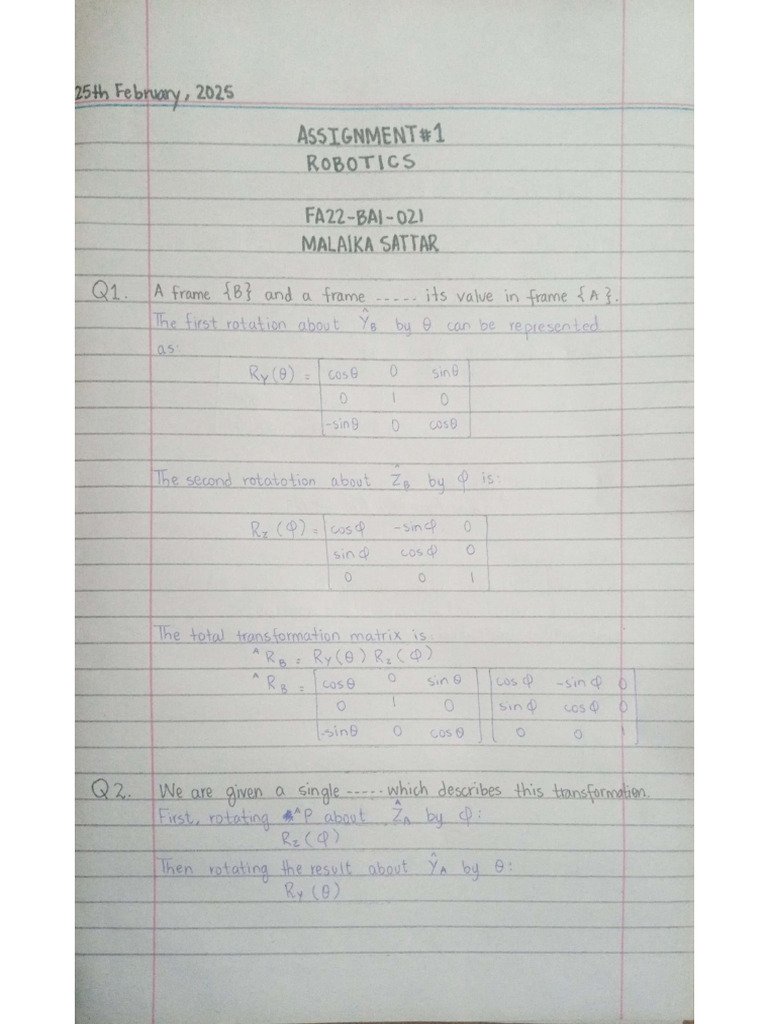 25th February, 2025
ASSIGNMENT#1
ROBOTICS
FA22-BAI-021
MALAIKA SATTAR
Q1. A frame {B} and a frame ..... its value in frame {A}.
The first rotation about Ŷ_B by θ can be represented
as:
Ry(θ) = cosθ 0 sinθ
0 1 0
-sinθ 0 cosθ
The second rotatotion about Ẑ_B by φ is:
Rz(φ) = cosφ -sinφ 0
sinφ cosφ 0
0 0 1
The total transformation matrix is
ᴬR_B = Ry(θ) Rz(φ)
ᴬR_B = cosθ 0 sinθ cosφ -sinφ 0
0 1 0 sinφ cosφ 0
-sinθ 0 cosθ 0 0 1
Q2. We are given a single ..... which describes this transformation.
First, rotating ᴬP about Ẑ_A by φ:
Rz(φ)
Then rotating the result about Ŷ_A by θ:
Ry(θ)